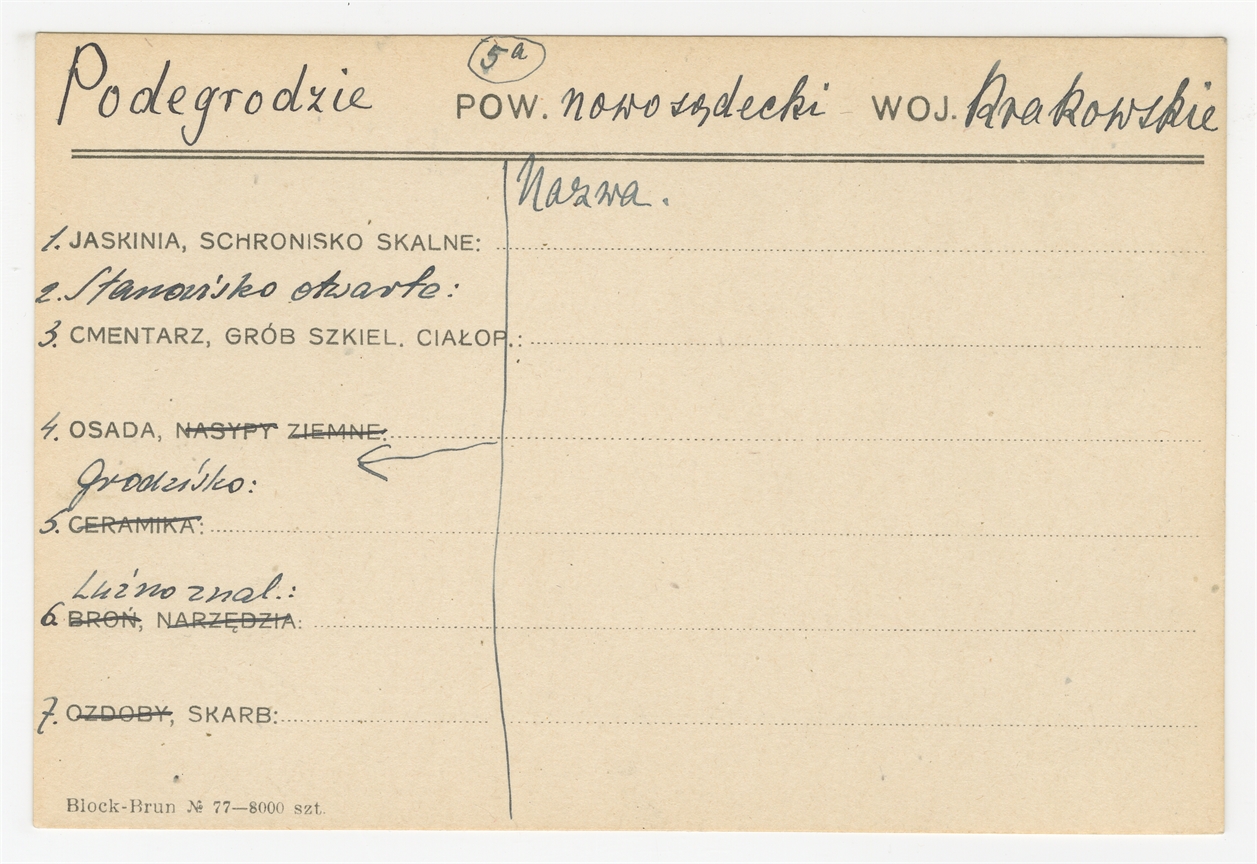 5a
Podegrodzie POW. nowosądecki WOJ. Krakowskie
Nazwa.
1. JASKINIA, SCHRONISKO SKALNE:
2. Stanowisko otwarte:
3. CMENTARZ, GRÓB SZKIEL. CIAŁOP.:
4. OSADA, NASYPY ZIEMNE:
Grodzisko:
5. CERAMIKA:
Luźno znal.:
6. BROŃ, NARZĘDZIA:
7. OZDOBY, SKARB:
Block-Brun № 77—8000 szt.